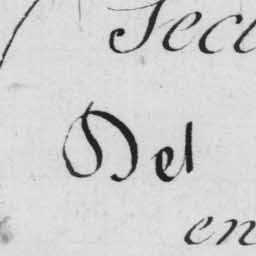 Sect
Del
en